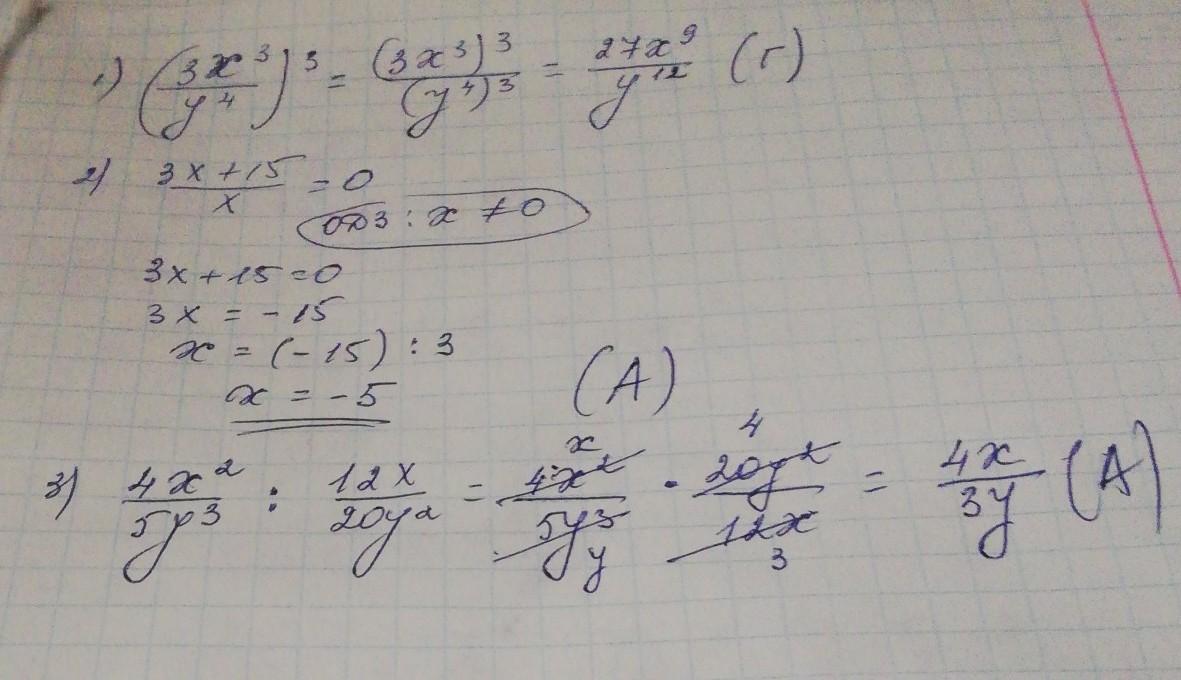 1) (3x³/y⁴)³ = (3x³)³/(y⁴)³ = 27x⁹/y¹² (г)
2) (3x+15)/x = 0
ОДЗ : x ≠ 0
3x+15=0
3x = -15
x = (-15) : 3
x = -5 (А)
3) 4x²/5y³ : 12x/20y² = 4x²/5y³ · 20y²/12x = 4x/3y (А)